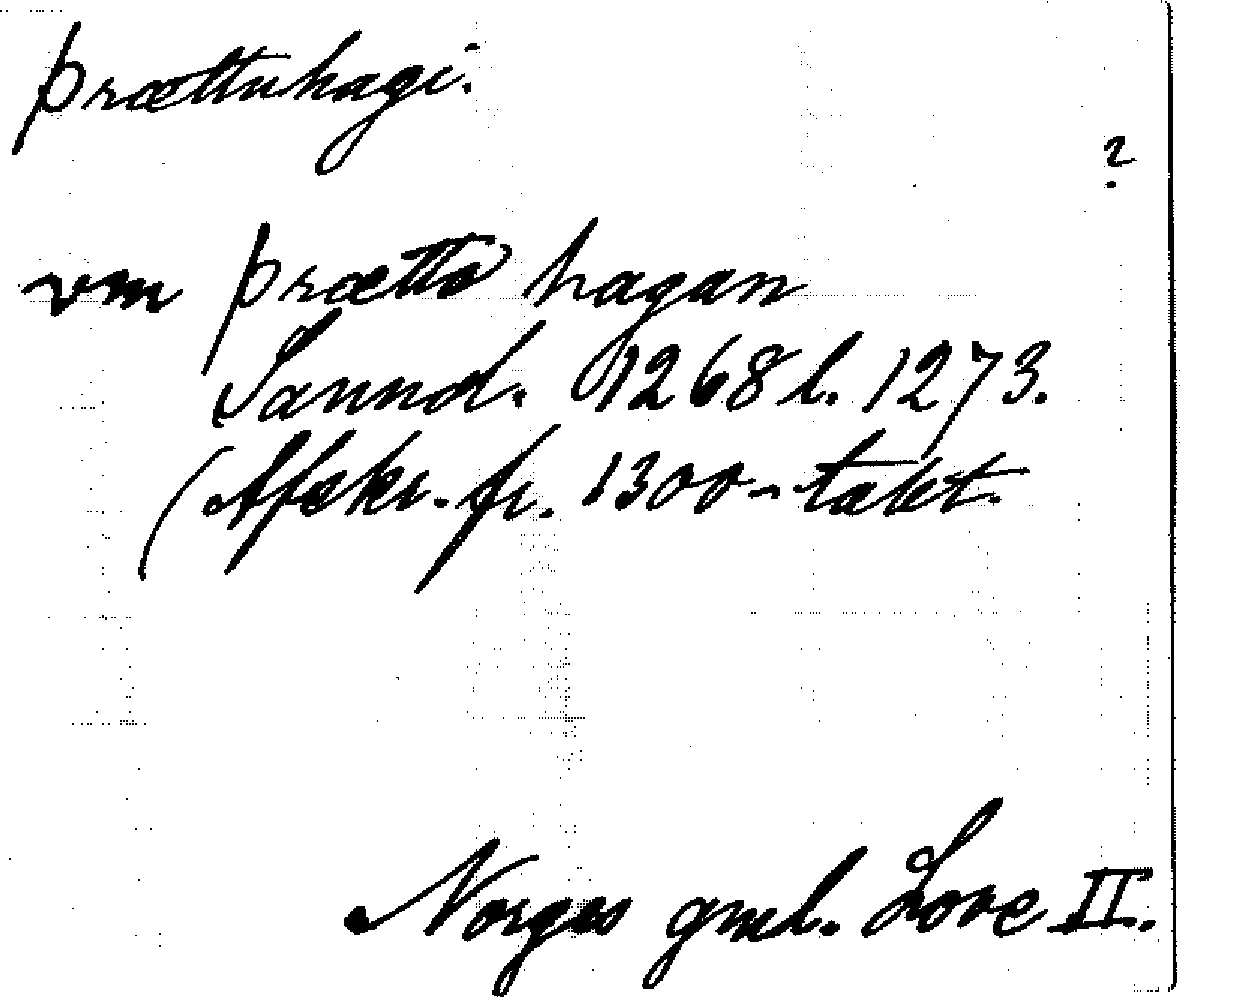 þrættuhagi.
?
vm þrætto hagan
Sannd. 1268 l. 1273.
(Afskr. fr. 1300-talet.
Norges gml. Love II.